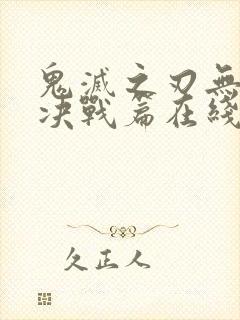 鬼滅之刃無
决戰篇在綫
久正人